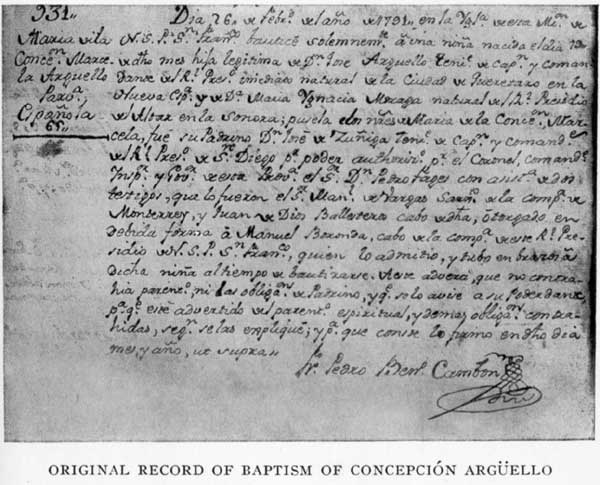 931,,
Maria de la
Concen. Marce
la Arguello
Parva.
Española
65,,
Dia 26 de Febro. del año de 1791,, en la Yga. de esta Mon. de
N. S. P. Sn. Franco. bautice solemnemte. à una niña nacida el dia 19
de dho mes hija legitima de Dn. Jose Arguello Tente. de Capn. y coman
dante del Rl. Preso. imediato natural de la Ciudad de Queretaro en la
Nueva Espa. y de Da. Maria Ygnacia Moraga natural del Rl. Presidio
de Altar en la Sonora; puse la los nes. de Maria de la Concen. Mar-
cela, fué su Padrino Dn. José de Zuñiga Tente. de Capn. y Comande.
del Rl. Preso. de Sn. Diego pr. poder authoriz. pr. el Coronel, comande.
Inspr. y Govr. de esta Prova. el Sr. Dn. Pedro Fages con asista. de dos
testigos, que lo fueron el Sr. Manl. de Vargas Sargto. de la compa. de
Monterrey, y Juan de Dios Ballesteros cabo de dha, otorgado en
debida forma à Manuel Boronda, cabo de la compa. de este Rl. Pre-
sidio de N. S. P. Sn. Franco., quien lo admitio, y tubo en brazos à
dicha niña al tiempo de bautizarse. A este advertí, que no contra-
hia parento., ni las obligs. de Padrino, y qe. solo avise a su Poderdante,
pa. qe. esté advertido del parento. espiritual, y demas obligns. contra-
hidas, segn. se las expliqué; y pa. que conste lo firmo en dho dia
mes, y año, ut supra,,
Fr. Pedro Bento. Cambon
ORIGINAL RECORD OF BAPTISM OF CONCEPCIÓN ARGÜELLO